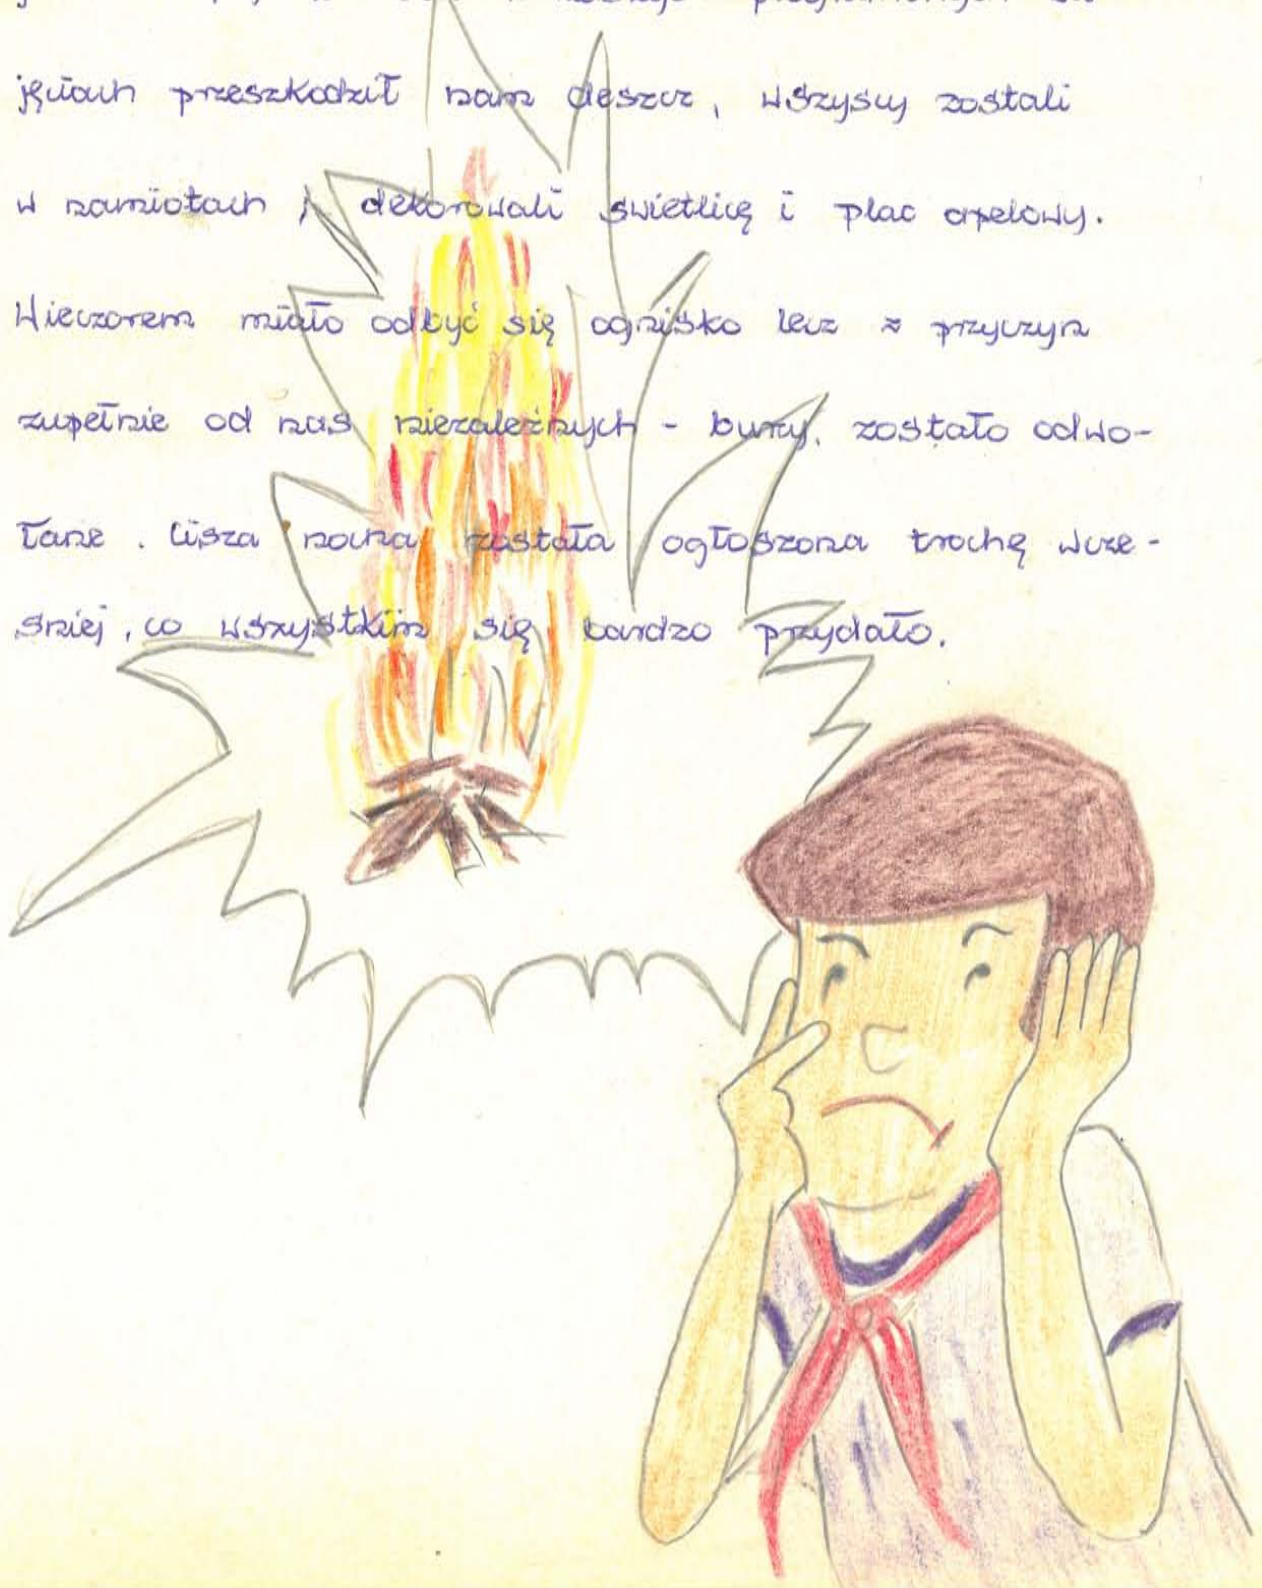 jęciach przeszkodził nam deszcz, wszyscy zostali
w namiotach i dekorowali świetlicę i plac apelowy.
Wieczorem miało odbyć się ognisko lecz z przyczyn
zupełnie od nas niezależnych - burzy, zostało odwo-
łane. Cisza nocna została ogłoszona trochę wcze-
śniej, co wszystkim się bardzo przydało.